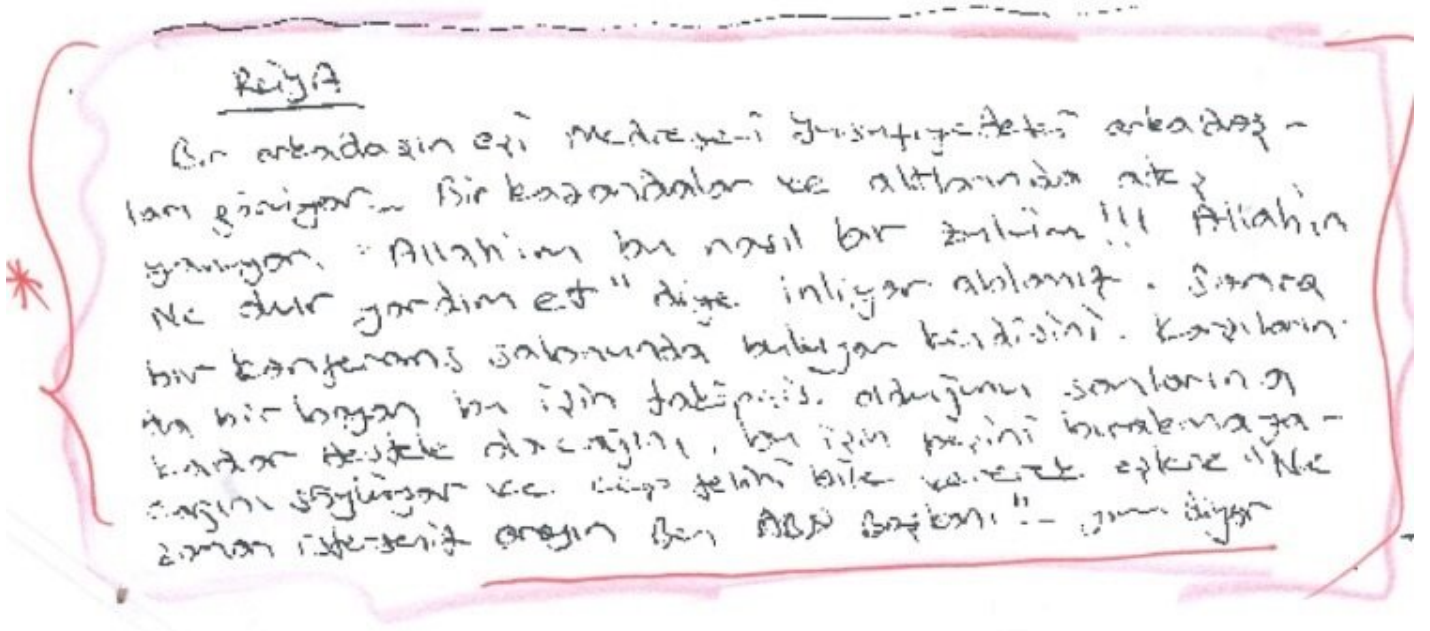 Rüya
Bir arkadaşın eşi Medrese-i Yusufiyedeki arkadaş-
ları görüyor... Bir kazandalar ve altlarında ateş
yanıyor. "Allahım bu nasıl bir zulüm!!! Allahım
Ne olur yardım et" diye inliyor ablamız. Sonra
bir konferans salonunda buluyor kendisini.
bir bayan bu işin takipçisi olduğunu sonlarına
kadar destek olacağını, bu işin peşini bırakmaya-
cağını söylüyor ve cep telini bile vererek "Ne
zaman isterseniz arayın Ben ABD Başkanı"... diyor